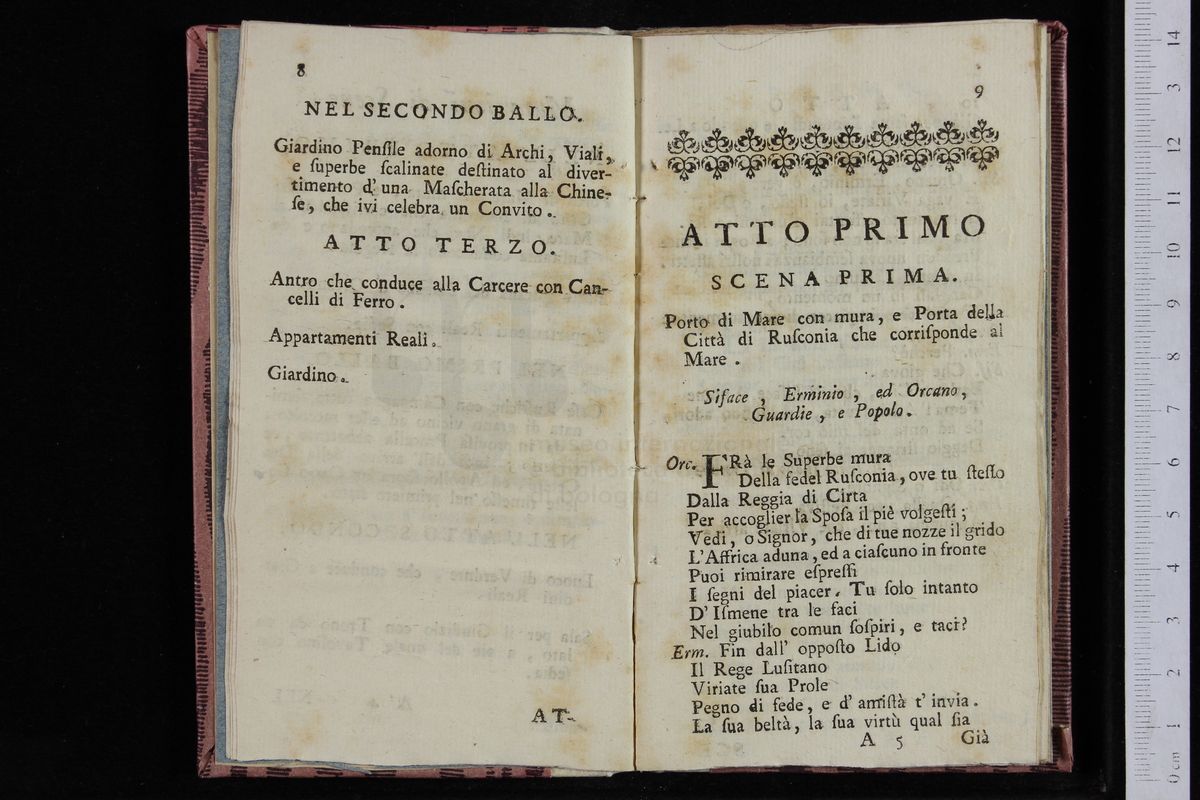 8
NEL SECONDO BALLO.
Giardino Penſile adorno di Archi, Viali,
e ſuperbe ſcalinate deſtinato al diver-
timento d' una Maſcherata alla Chine-
ſe, che ivi celebra un Convito.
ATTO TERZO.
Antro che conduce alla Carcere con Can-
celli di Ferro.
Appartamenti Reali.
Giardino.
AT-
9
ATTO PRIMO
SCENA PRIMA.
Porto di Mare con mura, e Porta della
Città di Ruſconia che corriſponde al
Mare.
Siface, Erminio, ed Orcano,
Guardie, e Popolo.
Orc. FRà le Superbe mura
Della fedel Ruſconia, ove tu ſteſſo
Dalla Reggia di Cirta
Per accoglier la Spoſa il piè volgeſti;
Vedi, o Signor, che di tue nozze il grido
L'Affrica aduna, ed a ciaſcuno in fronte
Puoi rimirare eſpreſſi
I ſegni del piacer. Tu ſolo intanto
D' Iſmene tra le faci
Nel giubilo comun ſoſpiri, e taci?
Erm. Fin dall' oppoſto Lido
Il Rege Luſitano
Viriate ſua Prole
Pegno di fede, e d' amiſtà t' invia.
La ſua beltà, la ſua virtù qual ſia
A 5 Già
14
13
12
11
10
9
8
7
6
5
4
3
2
1
0 cm